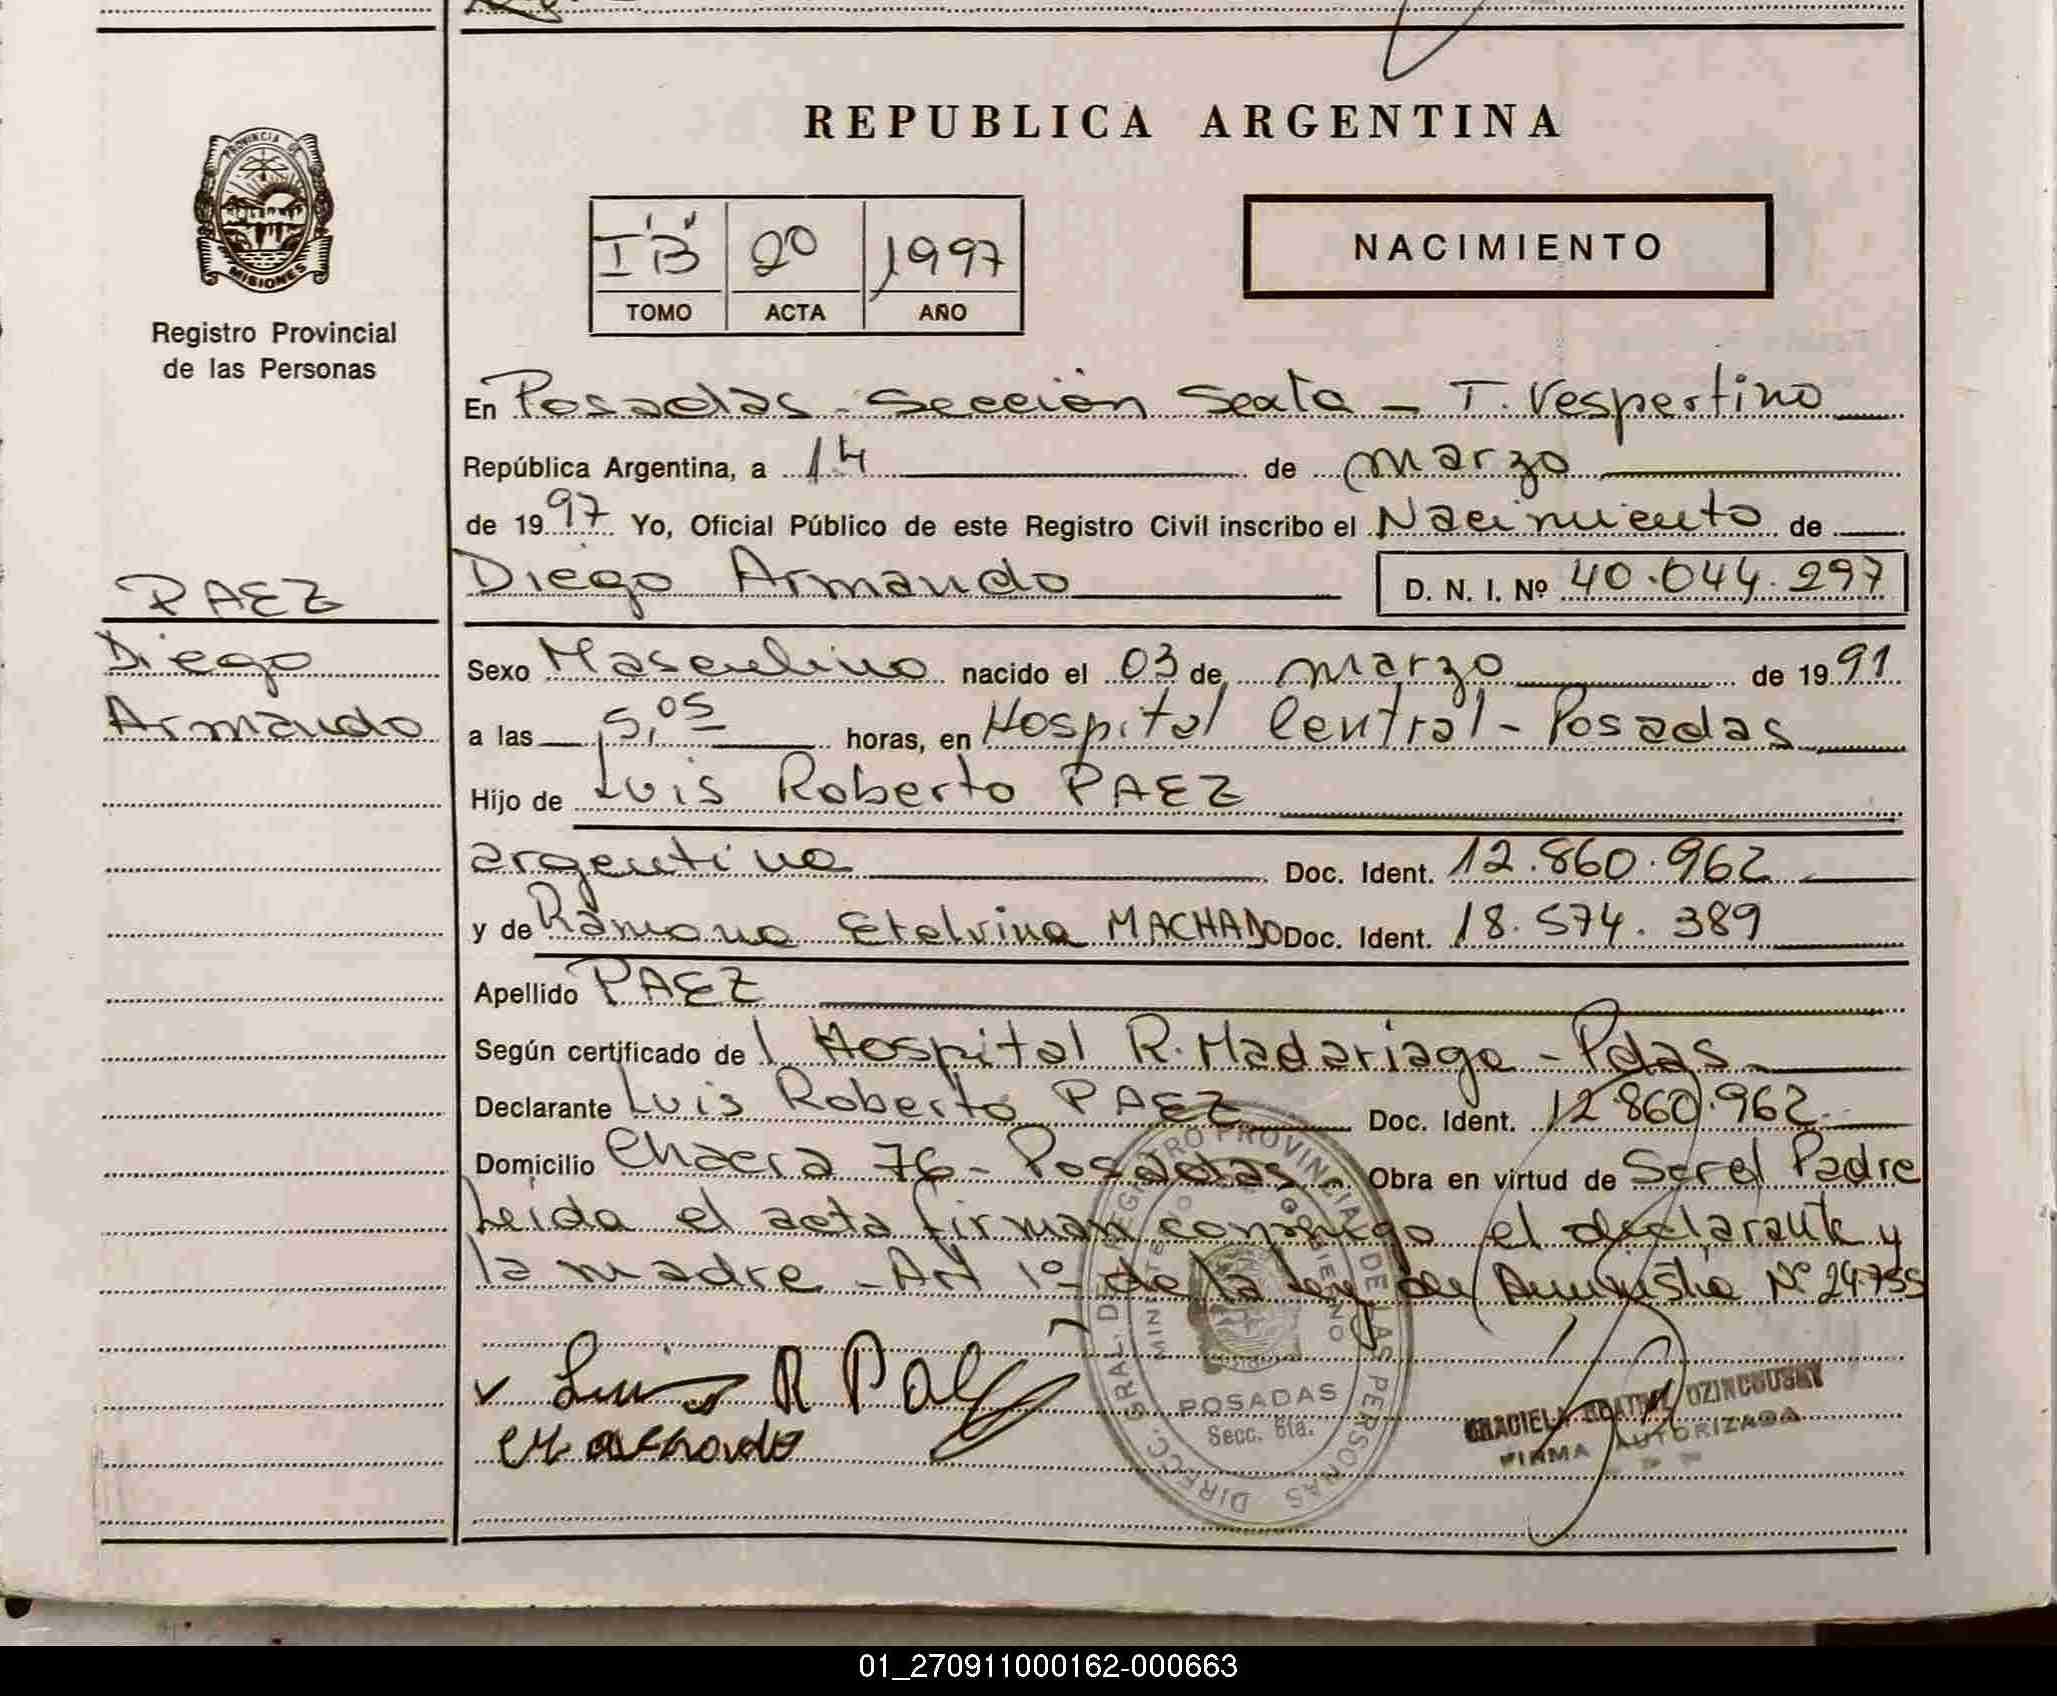 REPUBLICA ARGENTINA
PROVINCIA DE
MISIONES
Registro Provincial
de las Personas
I "B" 20 1997
TOMO ACTA AÑO
NACIMIENTO
En Posadas - Sección Sexta - T. Vespertino
República Argentina, a 14 de marzo
de 1997 Yo, Oficial Público de este Registro Civil inscribo el Nacimiento de
PAEZ
Diego Armando D. N. I. Nº 40.044.297
Diego
Armando
Sexo Masculino nacido el 03 de marzo de 1991
a las 5,05 horas, en Hospital Central - Posadas
Hijo de Luis Roberto PAEZ
argentino Doc. Ident. 12.860.962
y de Ramona Etelvina MACHADO Doc. Ident. 18.574.389
Apellido PAEZ
Según certificado del Hospital R. Madariaga - Pdas
Declarante Luis Roberto PAEZ Doc. Ident. 12.860.962
Domicilio Chacra 76 - Posadas Obra en virtud de Ser el Padre
Leida el acta firman conmigo el declarante y
la madre - Art 1º de la ley de Amnistia Nº 24.755
Luis R Paez
DIRECC. GRAL. DE REGISTRO PROVINCIAL DE LAS PERSONAS
MINISTERIO DE GOBIERNO
POSADAS
Secc. 6ta.
GRACIELA BEATRIZ
FIRMA AUTORIZADA
01_270911000162-000663